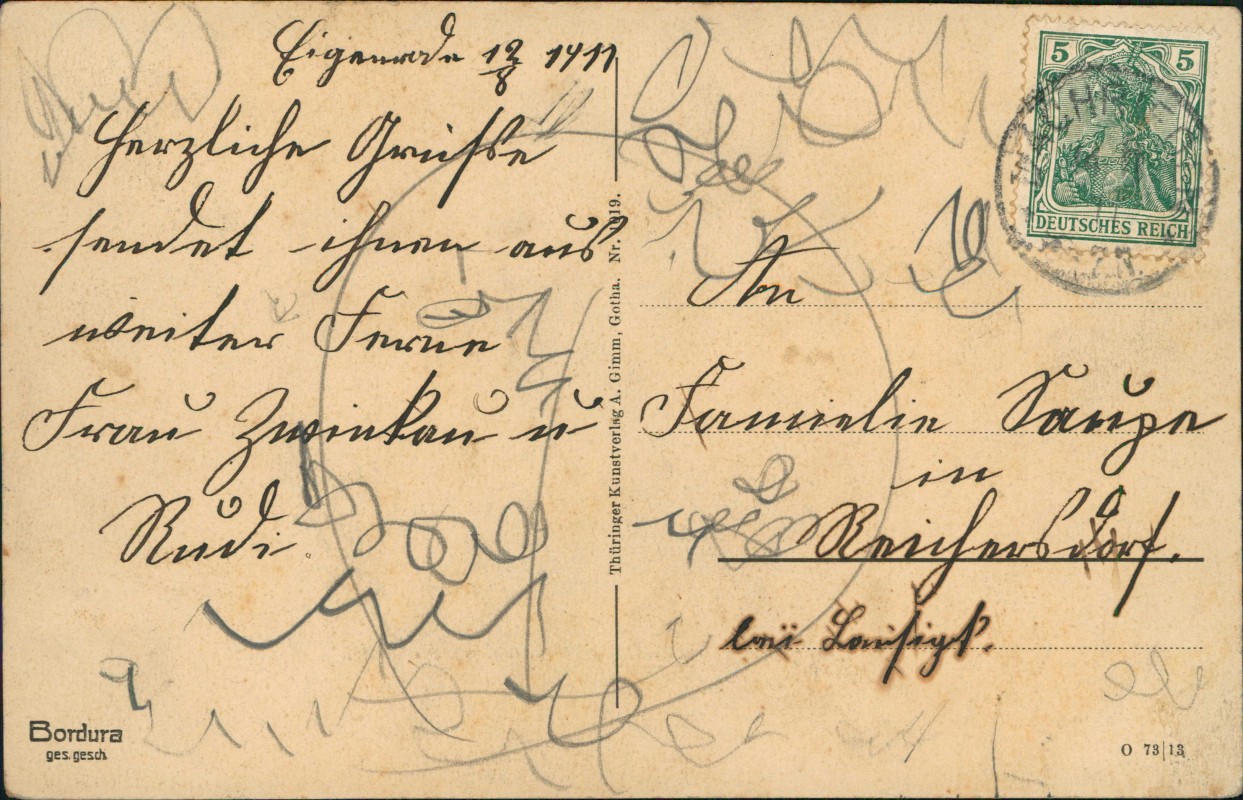 Eigenrode 12/8 1911
Herzliche Grüsse
sendet ihnen aus
weiter Ferne
Frau Zwinkau u
Rudi.
Bordura
ges. gesch.
Thüringer Kunstverlag A. Gimm, Gotha. Nr. 1919.
5 5
DEUTSCHES REICH
An
Familie Saupe
in
Reichersdorf.
bei Lausigk.
O 73|13